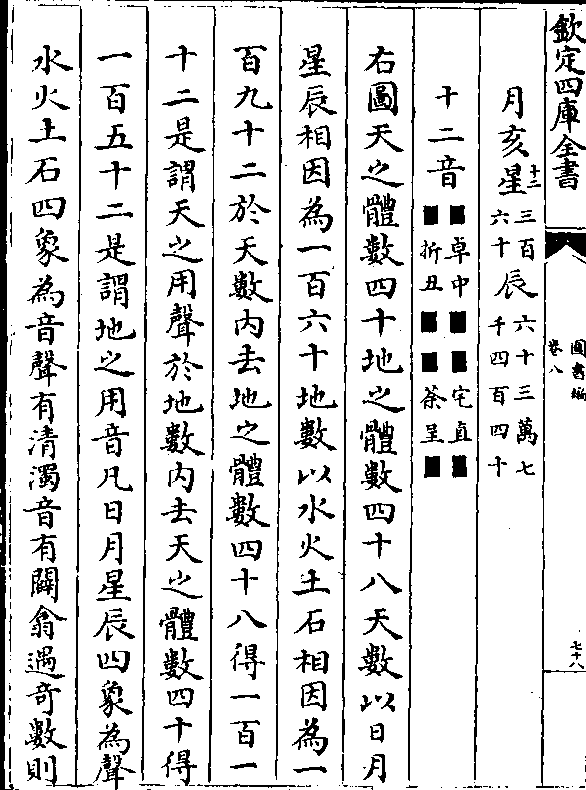 欽定四庫全書
卷八
七十八
月亥星十三 三百六十 辰 六十三萬七千四百四十
十二音 ■卓中■■宅直■ ■拆丑■■茶呈■
右圖天之體數四十地之體數四十八天數以日月
星辰相因為一百六十地數以水火土石相因為一
百九十二於天數內去地之體數四十八得一百一
十二是謂天之用聲於地數內去天之體數四十得
一百五十二是謂地之用音凡日月星辰四象為聲
水火土石四象為音聲有清濁音有闢翕遇奇數則